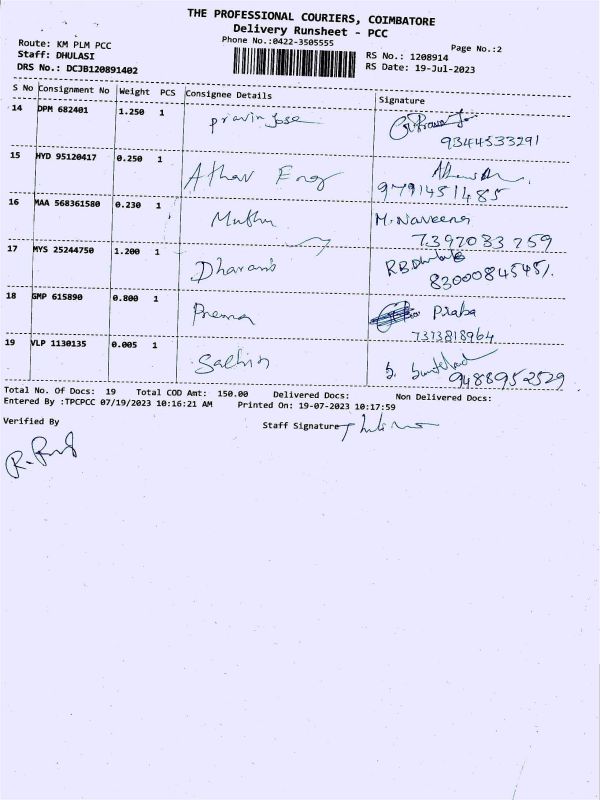 THE PROFESSIONAL COURIERS, COIMBATORE
Delivery Runsheet - PCC
Phone No.:0422-3505555
Page No.:2
Route: KM PLM PCC
Staff: DHULASI
DRS No.: DCJB120891402
RS No.: 1208914
RS Date: 19-Jul-2023
S No Consignment No Weight PCS Consignee Details Signature
14 DPM 682401 1.250 1 pravin Jose
9344533291
15 HYD 95120417 0.250 1 Athav Eng
9791451485
16 MAA 568361580 0.230 1 Muthu M. Naveena
7397083759
17 MYS 25244750 1.200 1 Dharanis
8300084545
18 GMP 615890 0.800 1 Prema Praba
7373818964
19 VLP 1130135 0.005 1 Sachin
9488952529
Total No. Of Docs: 19 Total COD Amt: 150.00 Delivered Docs: Non Delivered Docs:
Entered By :TPCPCC 07/19/2023 10:16:21 AM Printed On: 19-07-2023 10:17:59
Verified By
Staff Signature